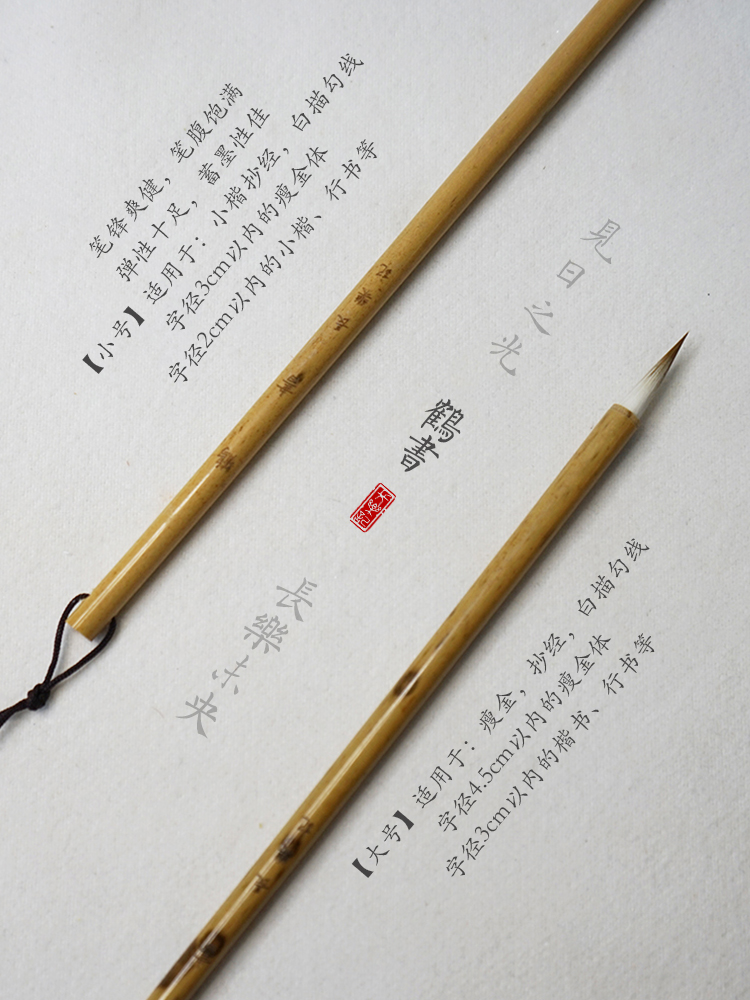 笔锋爽健，笔腹饱满
弹性十足，蓄墨性佳
【小号】适用于：小楷抄经，白描勾线
字径3cm以内的瘦金体
字径2cm以内的小楷、行书等
見日之光
鶴書
長樂未央
【大号】适用于：瘦金，抄经，白描勾线
字径4.5cm以内的瘦金体
字径3cm以内的楷书、行书等